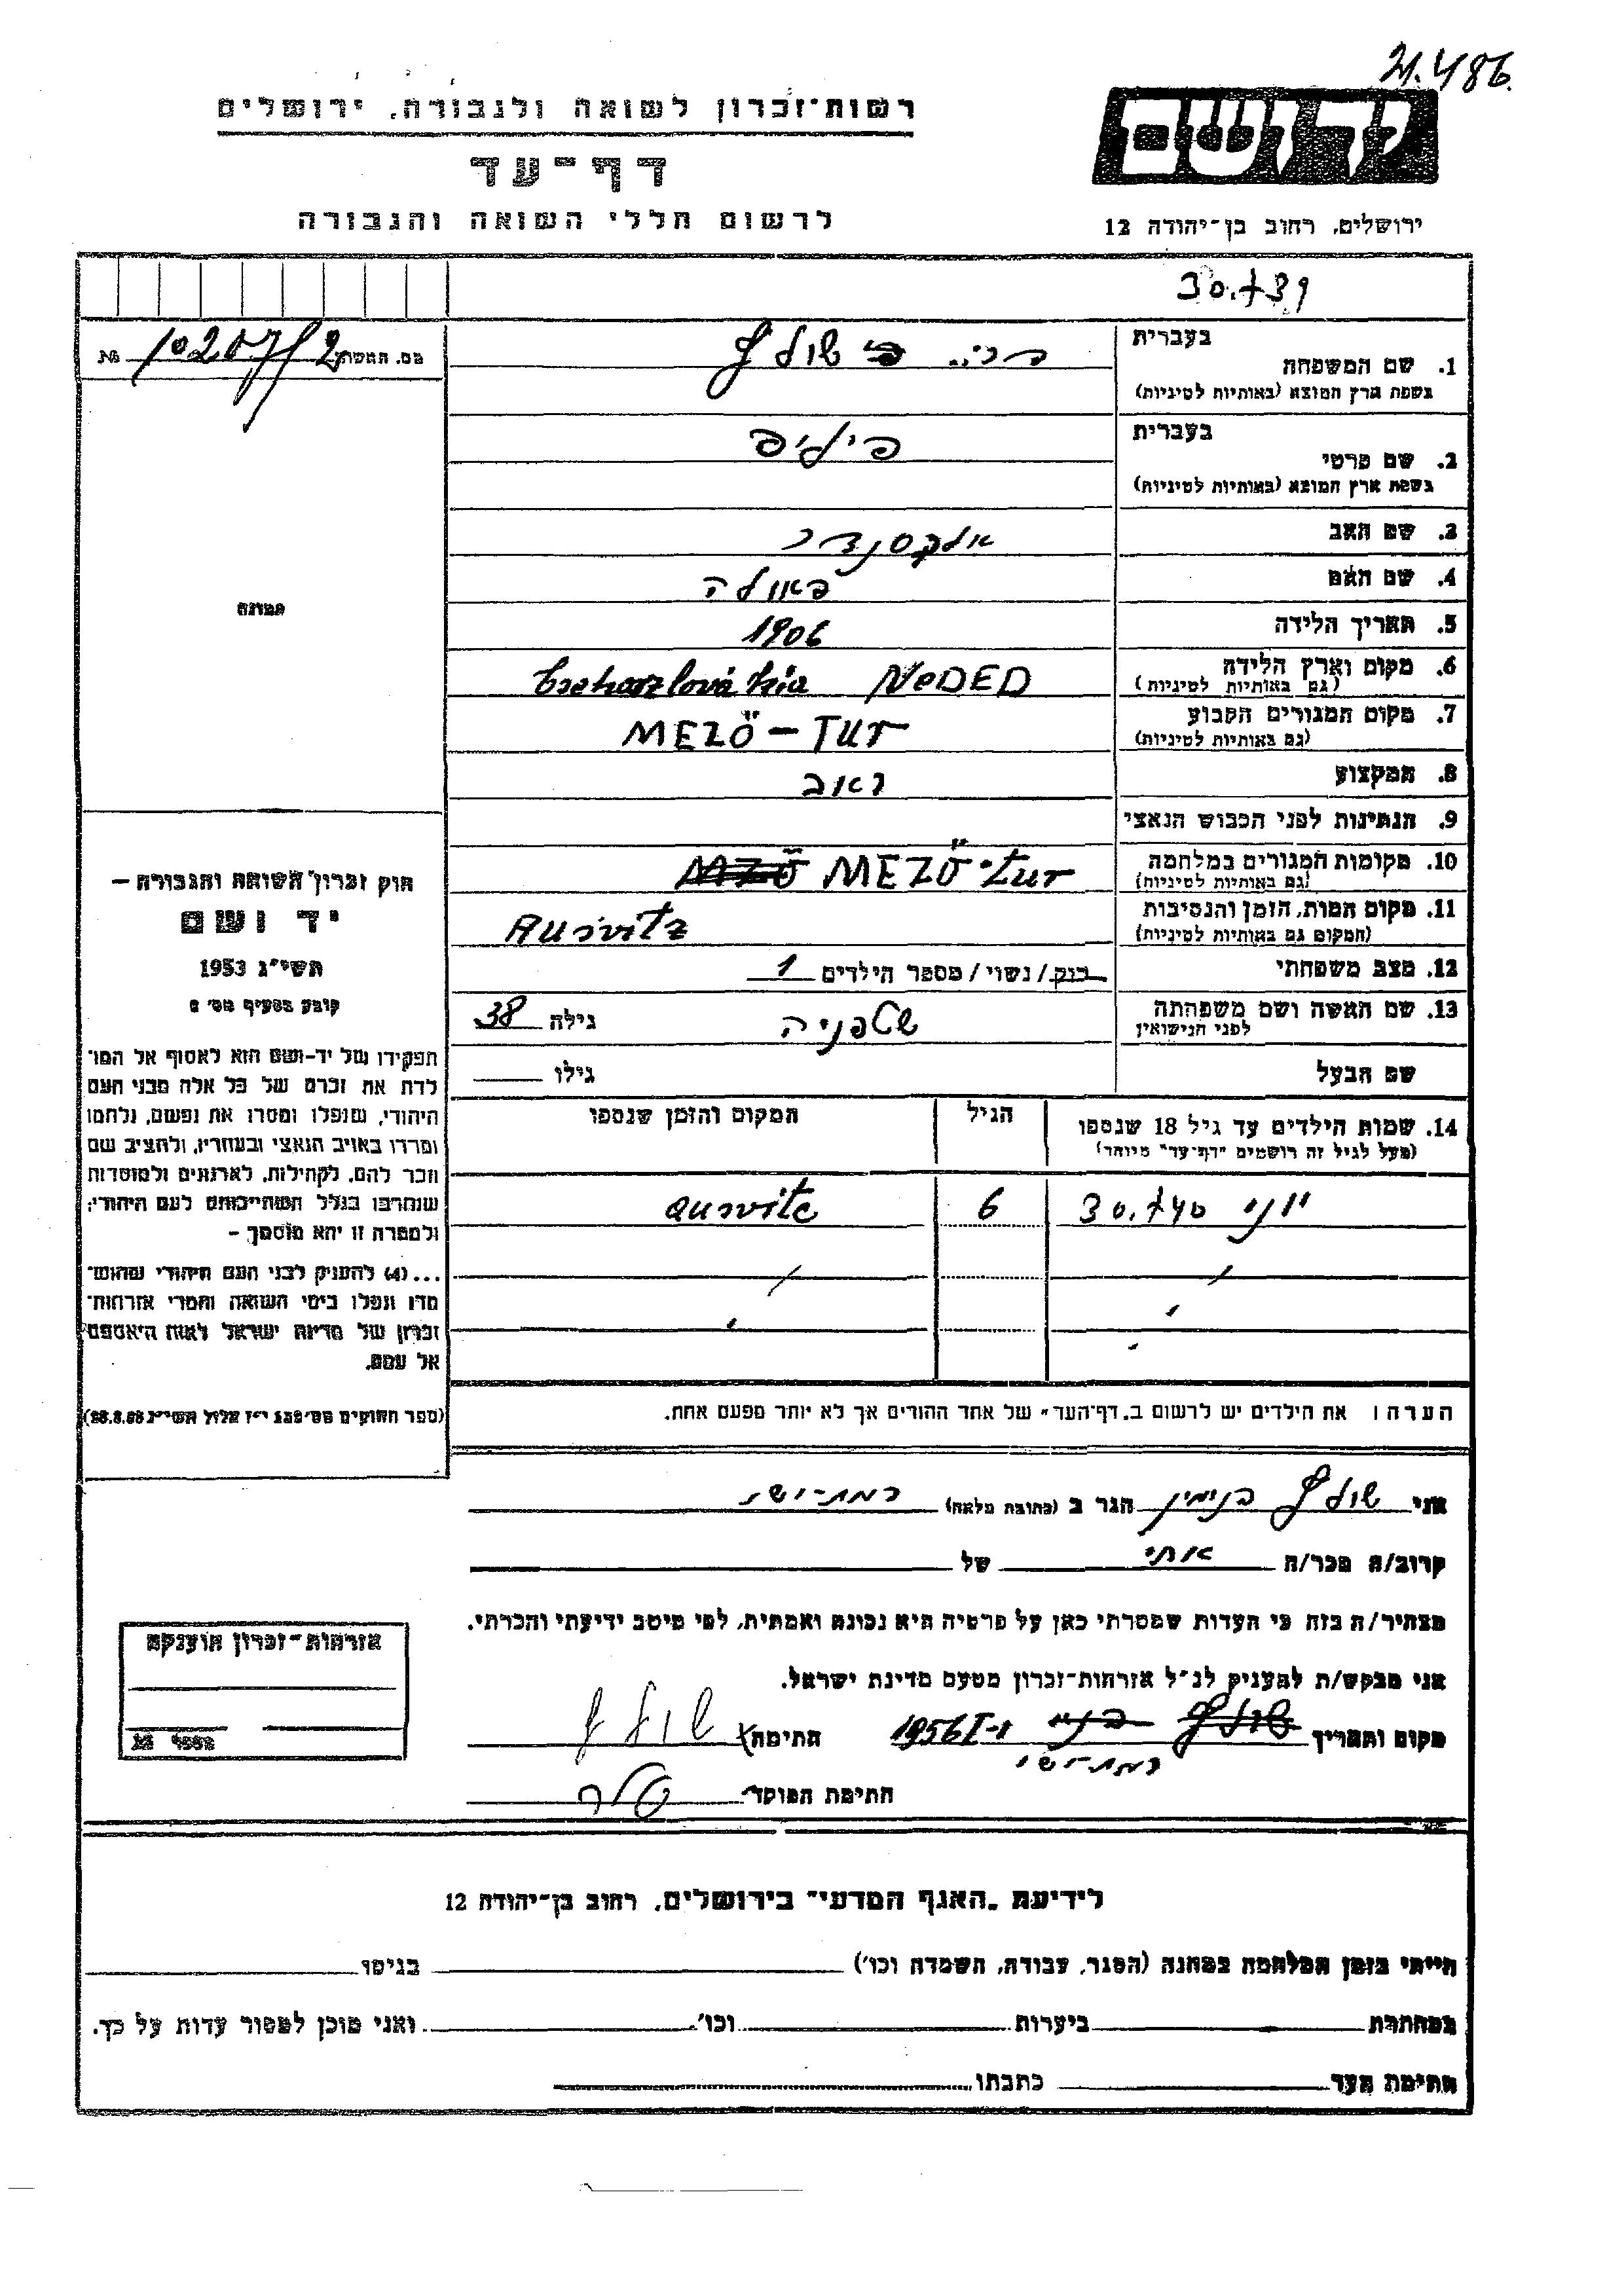 21.486
רשות־זכרון לשואה ולגבורה, ירושלים
יד ושם
דף־עד
לרשום חללי השואה והגבורה
ירושלים, רחוב בן־יהודה 12
30.739
מס. האשה 10207/2 №
1. שם המשפחה
בעברית
שולץ
בשפת ארץ המוצא (באותיות לטיניות)
2. שם פרטי
בעברית
פיליפ
בשפת ארץ המוצא (באותיות לטיניות)
3. שם האב
אלכסנדר
4. שם האם
פאולה
תמונה
5. תאריך הלידה
1906
6. מקום וארץ הלידה
(גם באותיות לטיניות)
NeDED
7. מקום המגורים הקבוע
(גם באותיות לטיניות)
MEZŐ-TUR
8. המקצוע
9. הנתינות לפני הכבוש הנאצי
10. מקומות המגורים במלחמה
(גם באותיות לטיניות)
MEZŐ-tur
11. מקום המות, הזמן והנסיבות
(המקום גם באותיות לטיניות)
Ausvitz
12. מצב משפחתי
רווק/נשוי/מספר הילדים 1
13. שם האשה ושם משפחתה
לפני הנישואין
שטפניה
גילה 38
שם הבעל
גילו
14. שמות הילדים עד גיל 18 שנספו
(מעל לגיל זה רושמים "דף־עד" מיוחד)
הגיל
המקום והזמן שנספו
30.740
6
ausvitz
הערה: את הילדים יש לרשום ב„דף־העד" של אחד ההורים אך לא יותר מפעם אחת.
חוק זכרון השואה והגבורה —
יד ושם
תשי"ג 1953
קובע בסעיף מס'
תפקידו של יד־ושם הוא לאסוף אל המו־
לדת את זכרם של כל אלה מבני העם
היהודי, שנפלו ומסרו את נפשם, נלחמו
ומרדו באויב הנאצי ובעוזריו, ולהציב שם
וזכר להם, לקהילות, לארגונים ולמוסדות
שנחרבו בגלל השתייכותם לעם היהודי;
ולמטרה זו יהא מוסמך —
...(4) להעניק לבני העם היהודי שהוש־
מדו ונפלו בימי השואה והמרי אזרחות־
זכרון של מדינת ישראל לאות היאספם
אל עמם.
(ספר החוקים מס' 132 י"ז אלול תשי"ג 28.8.53)
אני שולץ בנימין הגר ב (כתובת מלאה) רמת־ישי
קרוב/ה מכר/ה אחי של
מצהיר/ה בזה כי העדות שמסרתי כאן על פרטיה היא נכונה ואמתית, לפי מיטב ידיעתי והכרתי.
אני מבקש/ת להעניק לנ"ל אזרחות־זכרון מטעם מדינת ישראל.
מקום ותאריך 1956
רמת־ישי
חתימה שולץ
חתימת הפוקד
אזרחות־זכרון הוענקה
מספר
לידיעת „האגף המדעי" בירושלים, רחוב בן־יהודה 12
הייתי בזמן המלחמה במחנה (הסגר, עבודה, השמדה וכו') בגיטו
במחתרת ביערות וכו' ואני מוכן למסור עדות על כך.
חתימת העד כתבתו